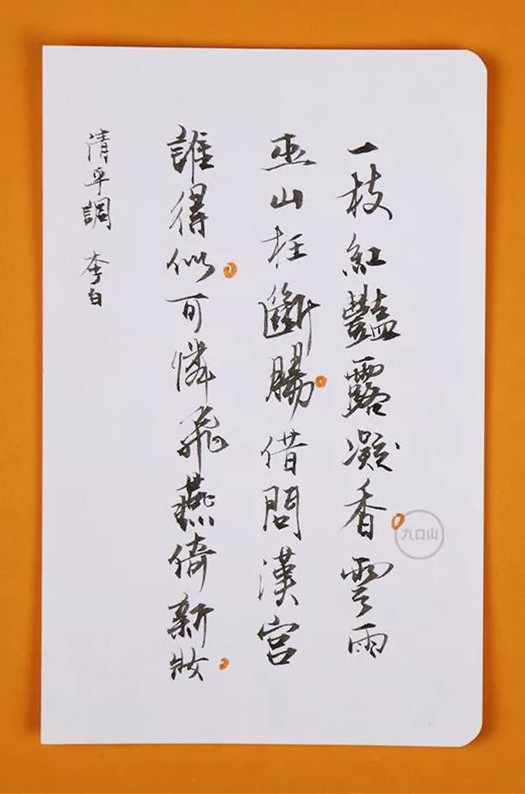 一枝紅豔露凝香。雲雨
巫山枉斷腸。借問漢宮
誰得似。可憐飛燕倚新妝。
清平調 李白
九口山